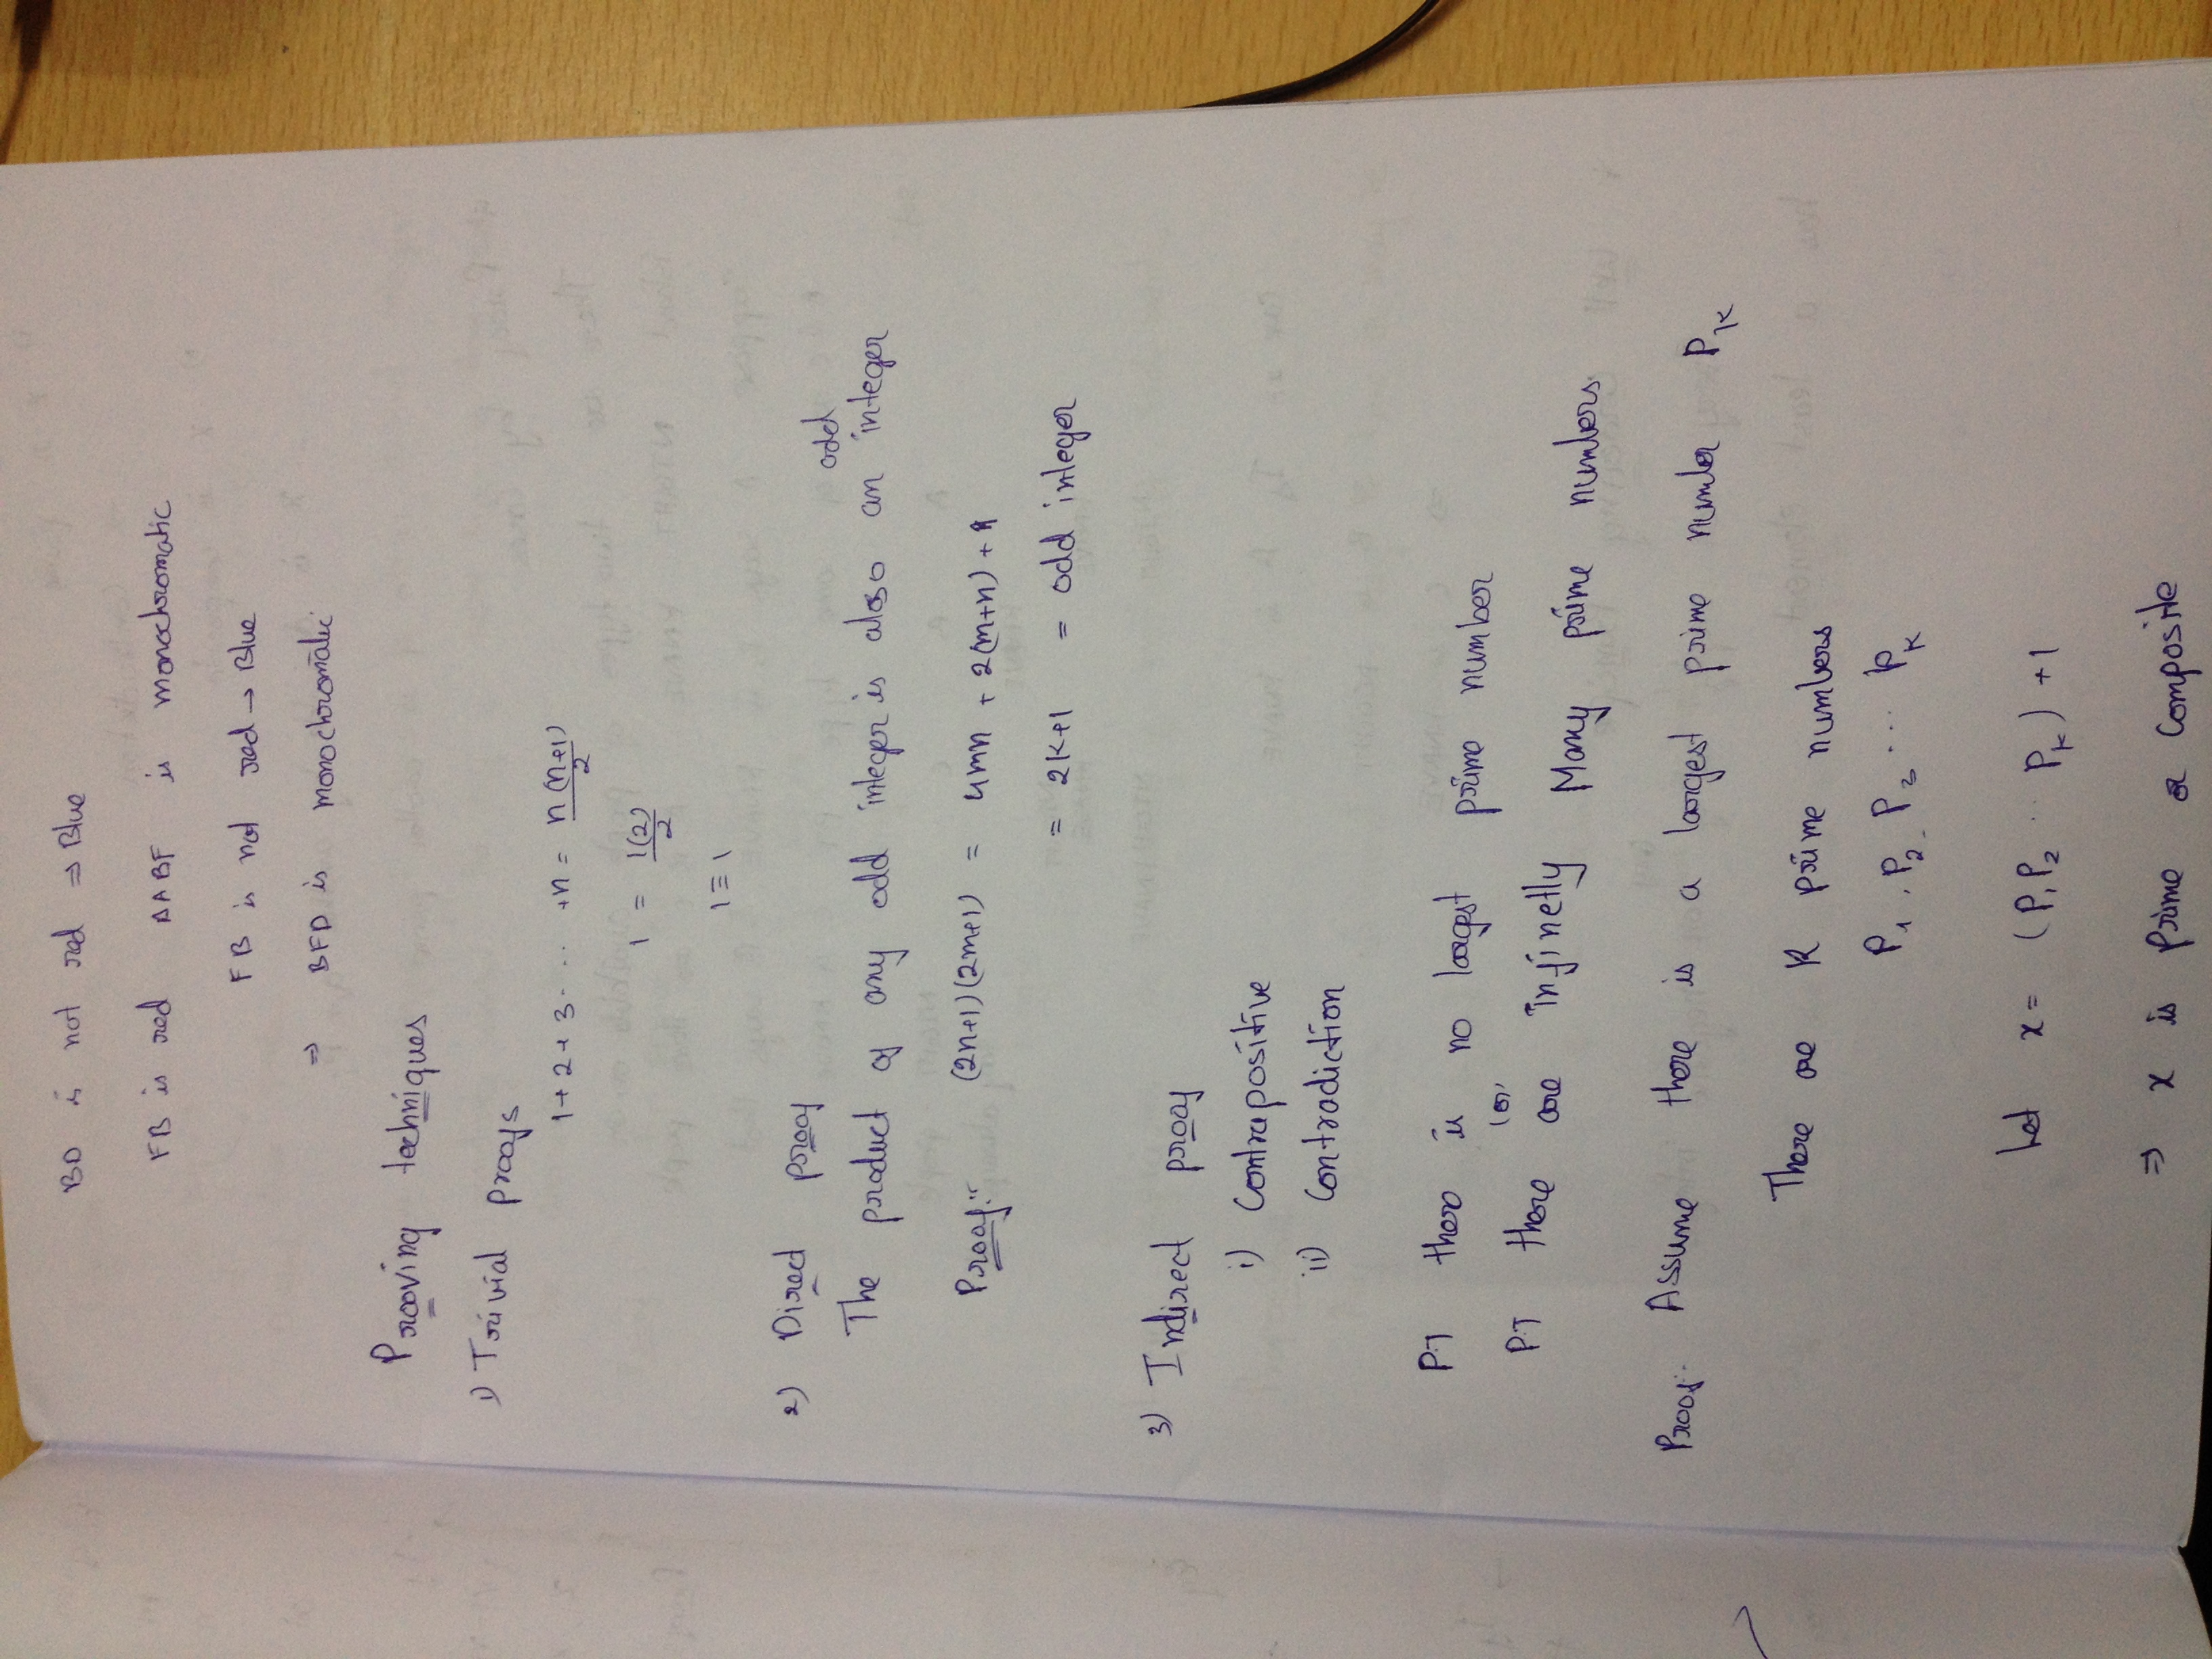 BD is not red ⇒ Blue
FB is red ΔABF is monochromatic
FB is not red → Blue
⇒ BFD is monochromatic
Prooving techniques
1) Trivial proofs
1 + 2 + 3 . . . . + n = n(n+1)/2
1 = 1(2)/2
1 ≡ 1
2) Direct proof
The product of any odd integer is also an odd integer
Proof:- (2n+1)(2m+1) = 4mn + 2(m+n) + 1
= 2k+1 = odd integer
3) Indirect proof
i) Contrapositive
ii) Contradiction
PT there is no largest prime number
(or)
PT there are infinetly Many prime numbers
Proof:- Assume there is a largest prime number Pk
There are K prime numbers
P1, P2, P3 . . . . Pk
Let x = (P1P2 . . Pk) + 1
⇒ x is prime or composite